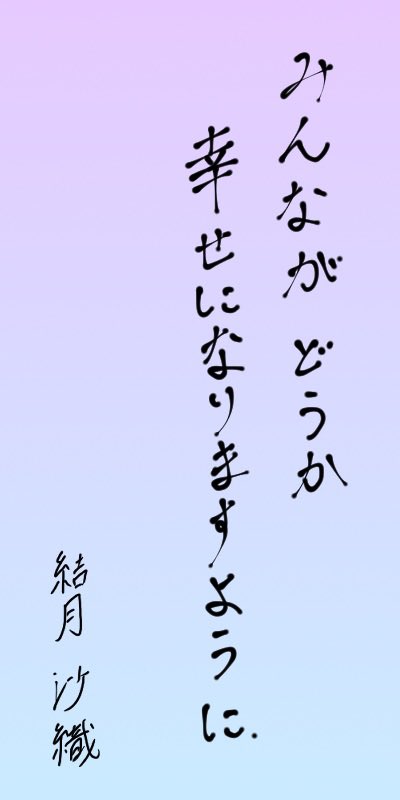 みんなが どうか
幸せになりますように.
結月 沙織